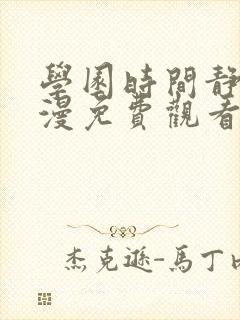 學園時間靜
漫免費觀看
杰克遜-馬丁